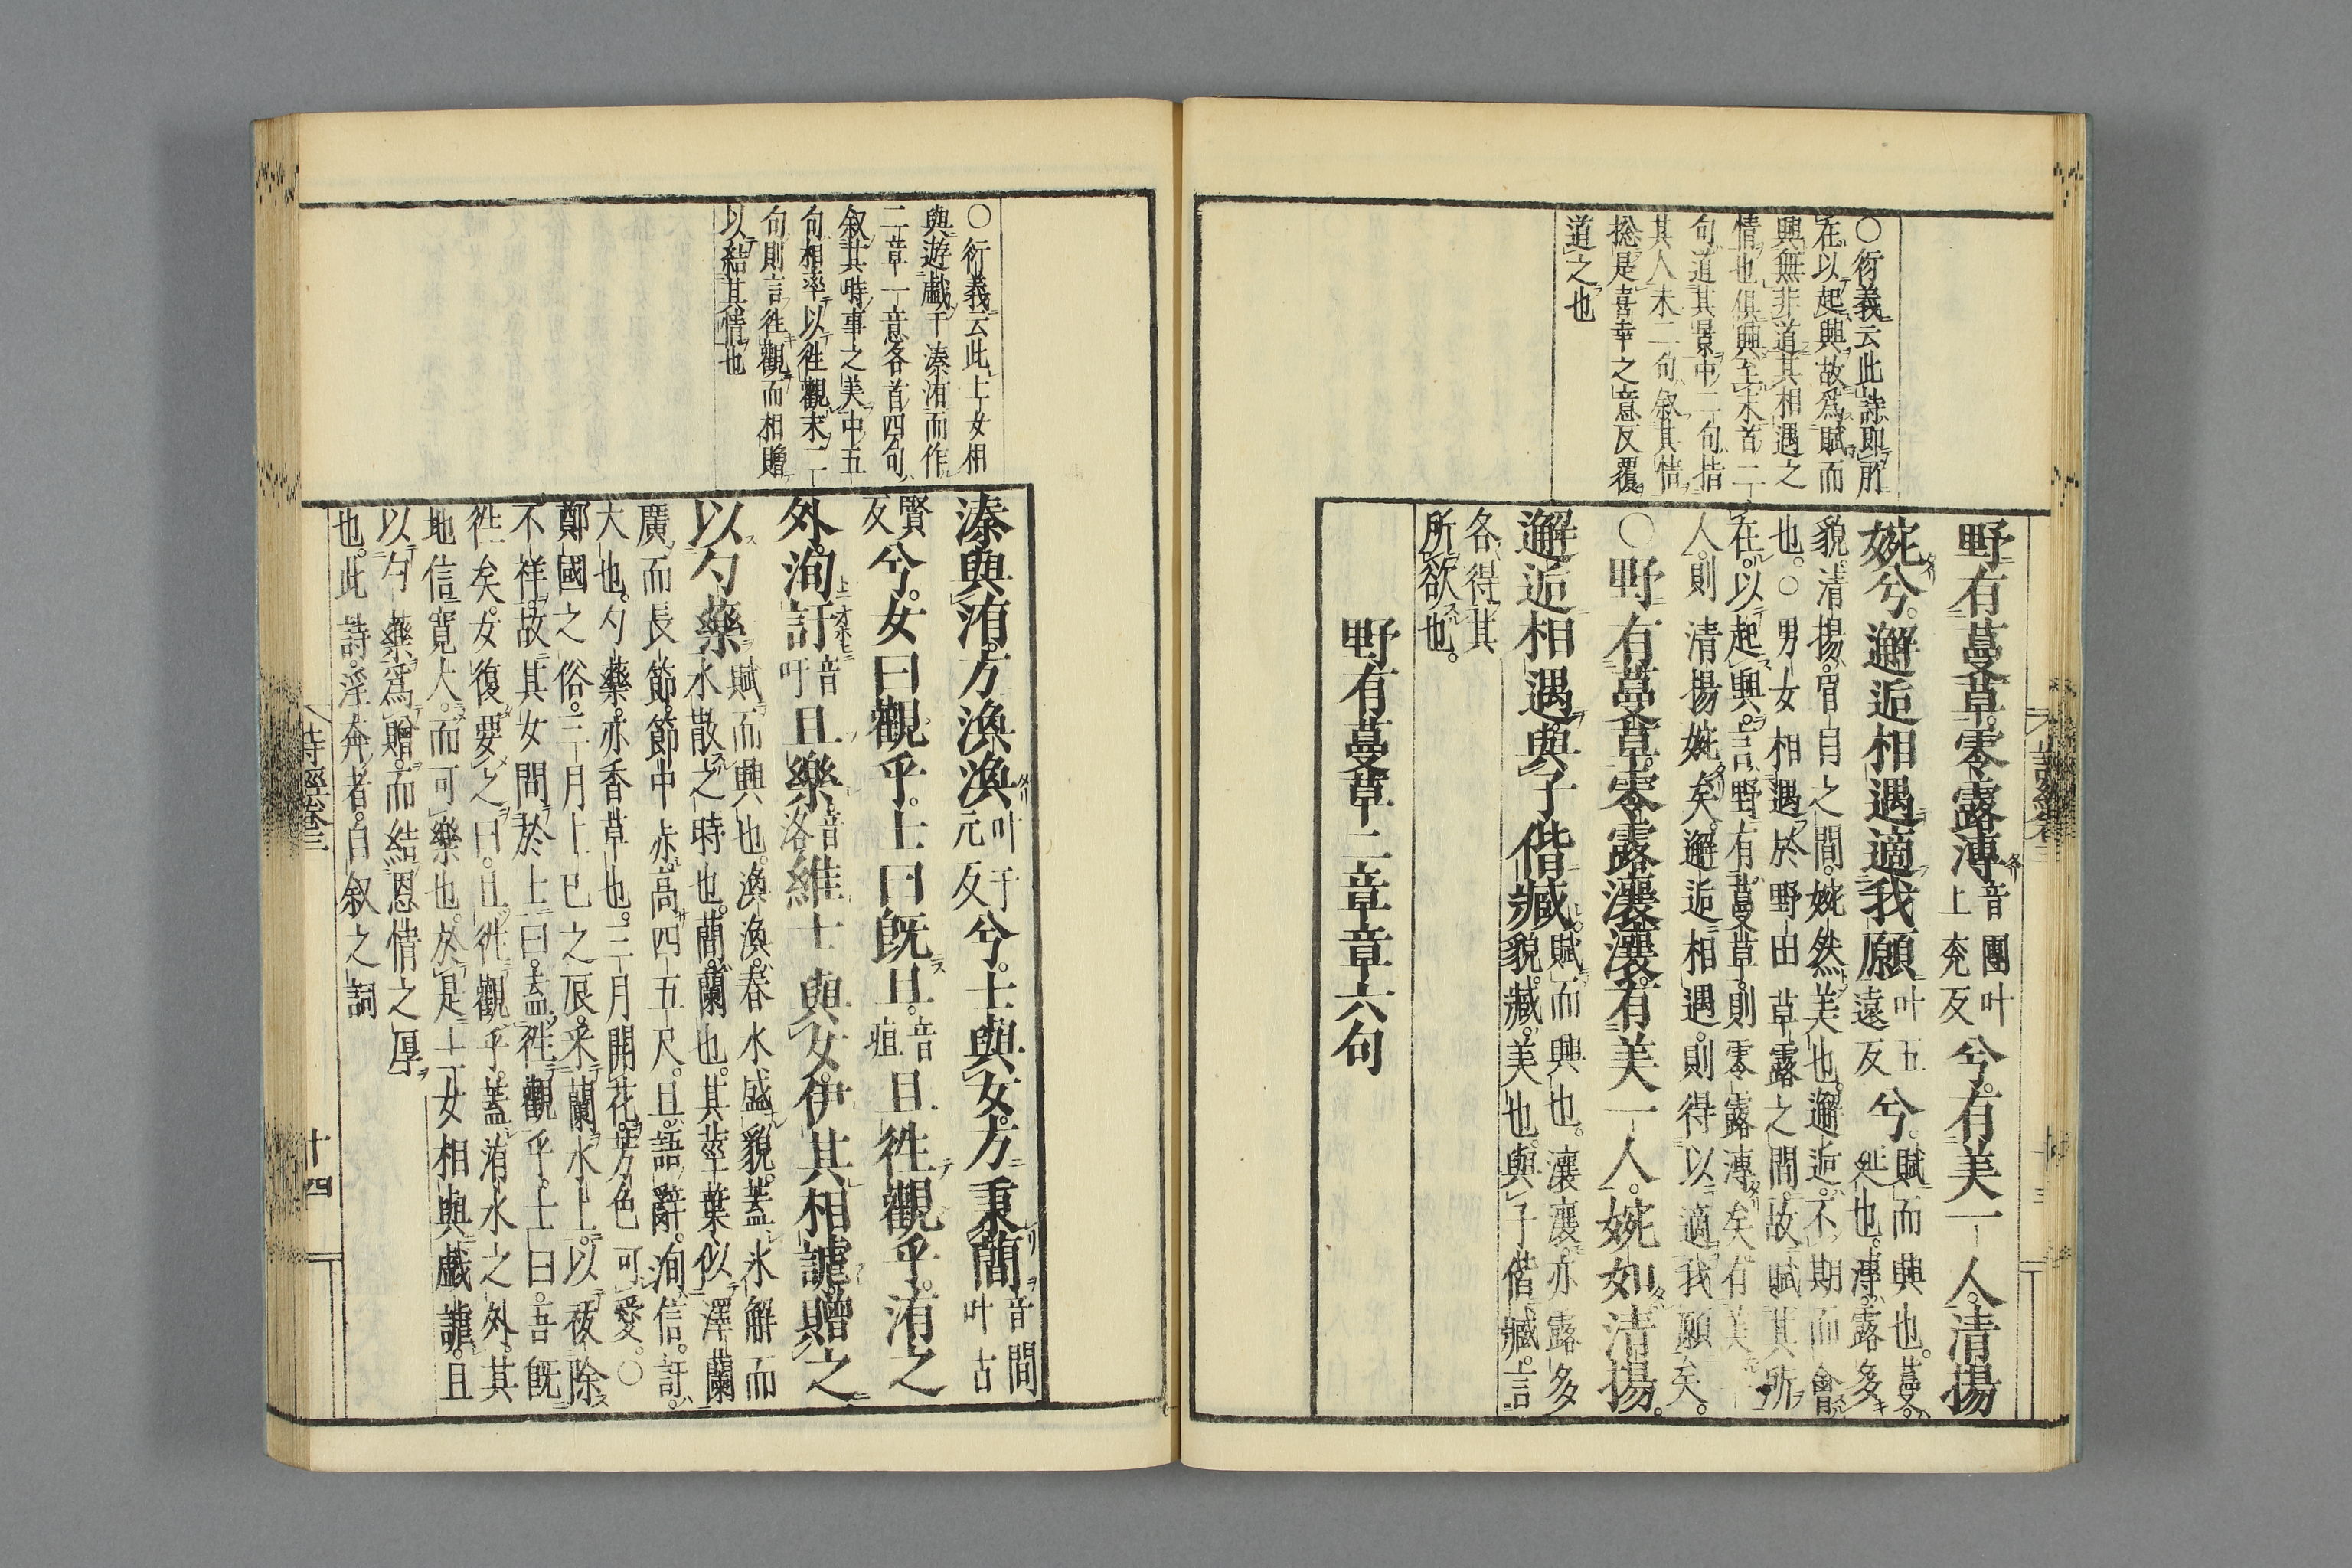 〇衍義云此詩即所
在以起興故爲賦而
興無非道其相遇之
情也俱興至末首二
句道其景中二句指
其人末二句叙其情
捴是喜幸之意反覆
道之也
野有蔓草零露漙音團叶上兖反兮有美一人淸揚
婉兮邂逅相遇適我願叶五遠反兮賦而興也蔓延也漙露多
貌淸揚眉目之間婉然美也邂逅不期而會
也〇男女相遇於野田草露之間故賦其所
在以起興言野有蔓草則零露漙矣有美一
人則淸揚婉矣邂逅相遇則得以適我願矣
〇野有蔓草零露瀼瀼有美一人婉如淸揚
邂逅相遇與子偕臧賦而興也瀼瀼亦露多貌臧美也與子偕臧言
各得其
所欲也
野有蔓草二章章六句
〇衍義云此士女相
與遊戯于溱洧而作
二章一意各首四句
叙其時事之美中五
句相率以徃觀末二
句則言徃觀而相贈
以結其情也
溱與洧方渙渙叶于元反兮士與女方秉蕑音間叶古
賢反兮女曰觀乎士曰旣且音疽且徃觀乎洧之
外洵訏音吁且樂音洛維士與女伊其相謔贈之
以勺藥賦而興也渙渙春水盛貌蓋氷解而水散之時也蕑蘭也其莖葉似澤蘭
廣而長節節中赤高四五尺且語辭洵信訏
大也勺藥亦香草也三月開花芳色可愛〇
鄭國之俗三月上巳之辰采蘭水上以祓除
不祥故其女問於士曰盍徃觀乎士曰吾旣
徃矣女復要之曰且徃觀乎蓋洧水之外其
地信寛大而可樂也於是士女相與戯謔且
以勺藥爲贈而結恩情之厚
也此詩淫奔者自叙之詞
詩經卷三
十四